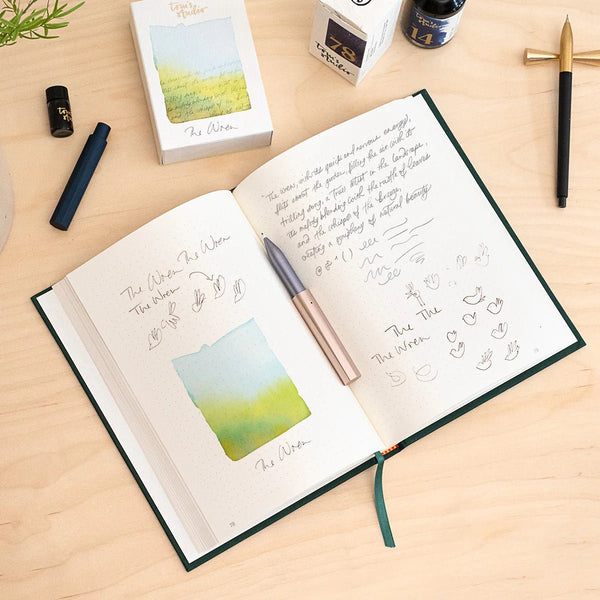 Tom's Studio
The Wren
Tom's Studio
78
Tom's Studio
14
The Wren The Wren
The Wren
The Wren
78
"The wrens, with their quick and nervous energy,
flits about the garden, filling the air with its
trilling song, a True artist in the landscape,
its melody blending with the rustle of leaves
and the whisper of the breeze,
creating a symphony of natural beauty
@ & ^ ( )
The The
The Wren
79